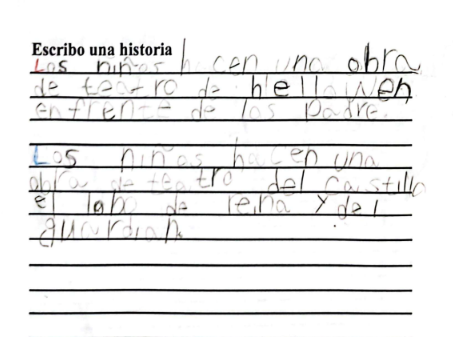 Escribo una historia
Los niños hacen una obra
de teatro de hellowen
enfrente de los padre.
Los niños hacen una
obra de teatro del castillo
el lobo de reina y del
guardian.